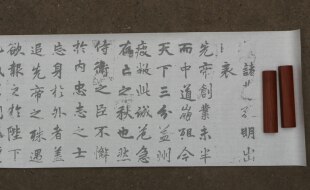 諸 明出
表
先帝創業未半
而中道崩殂今
天下三分益州
疲敝此誠危急
存亡之秋也然
侍衛之臣不懈
於內忠志之士
忘身於外者蓋
追先帝之殊遇
欲報之於陛下